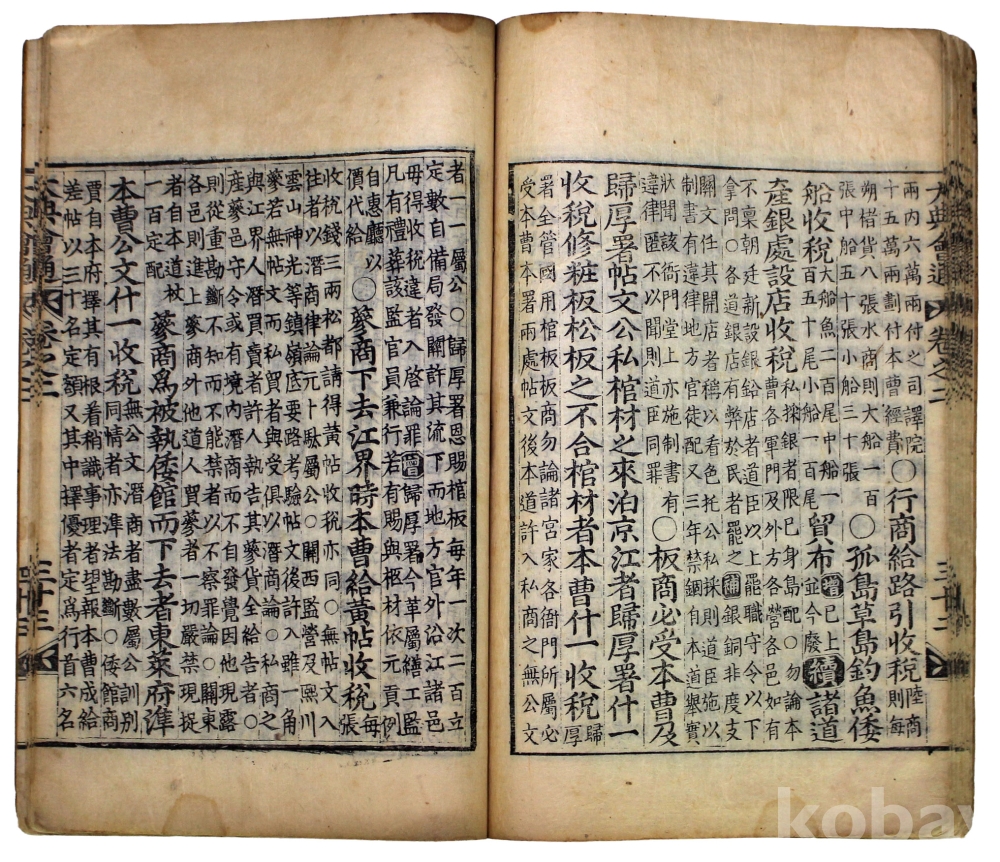 大典會通 卷之二 三十二
兩內六萬兩付之司譯院
十五萬兩劃付本曹經費
○行商給路引收稅
陸商
則每
朔楮貨八張水商則大船一百
張中船五十張小船三十張
○孤島草島釣魚倭
船收稅
大船魚二百尾中船一
百五十尾小船一百尾
貿布
增已上
並今廢
續諸道
產銀處設店收稅
私採銀者限已身島配○勿論本
曹各軍門及外方各營各邑如有
不稟朝廷新設銀鉛店者道臣以上罷職守令以下
拿問○各道銀店有弊於民者罷之補銀銅非度支
關文任其開店者稱以看色托公私採則道臣施以
制書有違律地方官徒配又三年禁錮自本道舉實
狀聞該衙門堂上亦施制書有
違律匿不以聞則道臣同罪
○板商必受本曹及
歸厚署帖文公私棺材之來泊京江者歸厚署什一
收稅修粧板松板之不合棺材者本曹什一收稅
歸
厚
署全管國用棺板板商勿論諸宮家各衙門所屬必
受本曹本署兩處帖文後本道許入私商之無公文
者一一屬公○歸厚署恩賜棺板每年一次二百立
定數自備局發關許其流下而地方官外沿江諸邑
毋得收稅違者入啓論罪增歸厚署今革屬繕工監
凡有禮葬該監官員兼行若有賜與柩材依元貢例
自惠廳以
價代給
○蔘商下去江界時本曹給黃帖收稅
每
張
收稅錢三兩松都請得黃帖收稅亦同○無帖文入
往者以潛商律論元卜駄屬公○關西監營及熙川
雲山神光等鎮嶺底要路考驗帖文後許入雖一角
蔘若無帖文而私買者與受俱以潛商論○私商之
與江界人潛買賣者許人執告其蔘貨全給告者○
產蔘邑守令或有境內潛商而不自發覺因他現露
則從重勘斷不知而不能禁者以不察罪論○關東
各邑則進上蔘商外他道人買蔘者一切嚴禁現捉
者自本道杖
一百定配
蔘商爲被執倭館而下去者東萊府準
本曹公文什一收稅
無公文潛商者盡數屬公訓別
同情者亦準法勘斷○倭館商
賈自本府擇其有根着稍識事理者望報本曹成給
差帖以三十名定額又其中擇優者定爲行首六名
大典會通 卷之二 三十三
kobay